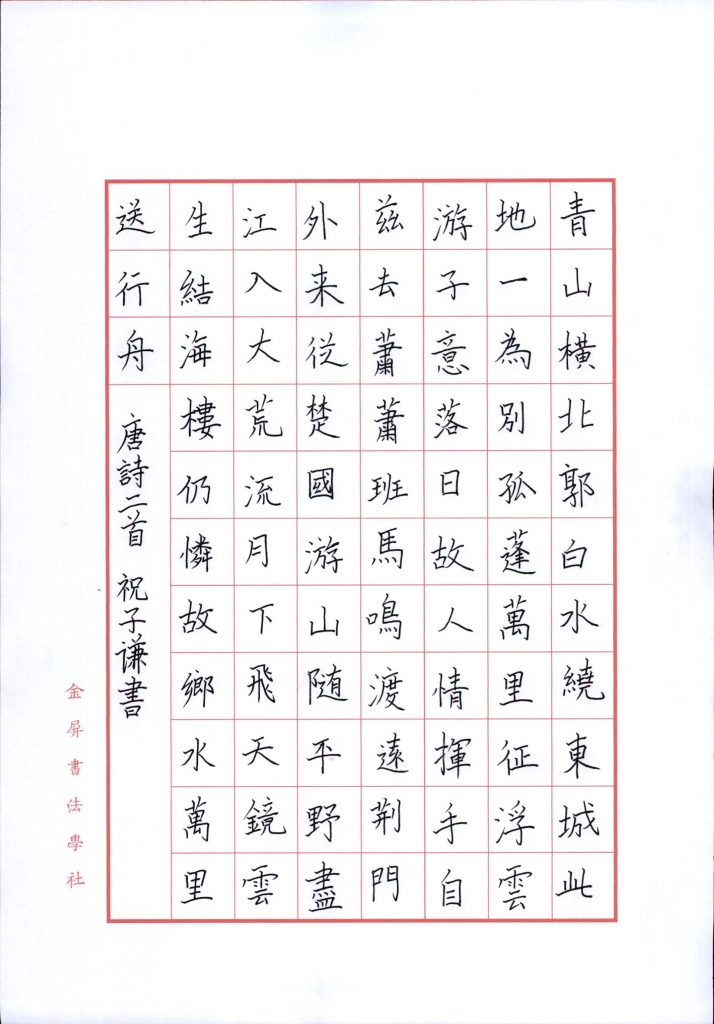 青山橫北郭白水繞東城此
地一為別孤蓬萬里征浮雲
游子意落日故人情揮手自
茲去蕭蕭班馬鳴渡遠荆門
外来從楚國游山随平野盡
江入大荒流月下飛天鏡雲
生結海樓仍憐故鄉水萬里
送行舟
唐詩二首 祝子谦書
金屏書法學社